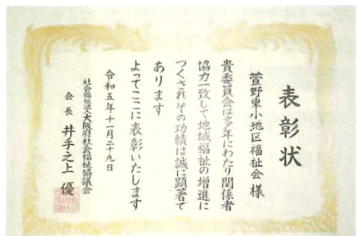 表彰状
萱野東小地区福祉会 様
貴委員会は多年にわたり関係者
協力一致して地域福祉の増進に
つくされその功績は誠に顕著で
あります
よってここに表彰いたします
令和五年十一月二十九日
社会福祉法人大阪府社会福祉協議会
会長 井手之上 優